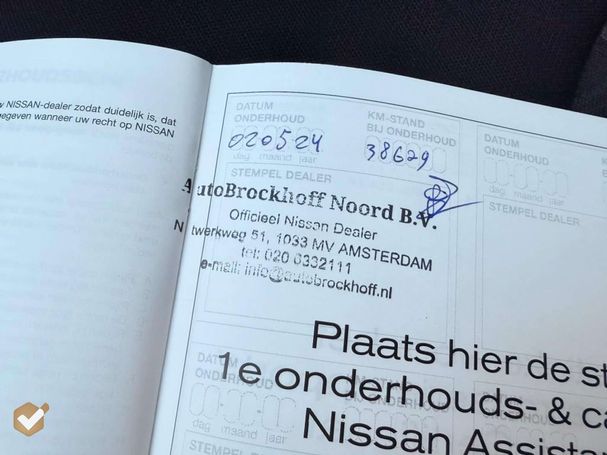 w NISSAN-dealer zodat duidelijk is, dat
gegeven wanneer uw recht op NISSAN
DATUM
ONDERHOUD
020524
dag maand jaar
KM-STAND
BIJ ONDERHOUD
38629
STEMPEL DEALER
AutoBrockhoff Noord B.V.
Officieel Nissan Dealer
N twerkweg 51, 1033 MV AMSTERDAM
tel: 020 6332111
e-mail: info@autobrockhoff.nl
DATUM
ONDERHOUD
dag maand
STEMPEL DEALER
Plaats hier de st
1e onderhouds- & ca
Nissan Assista
DATUM
ONDERHOUD
dag maand jaar
STEMPEL DEALER